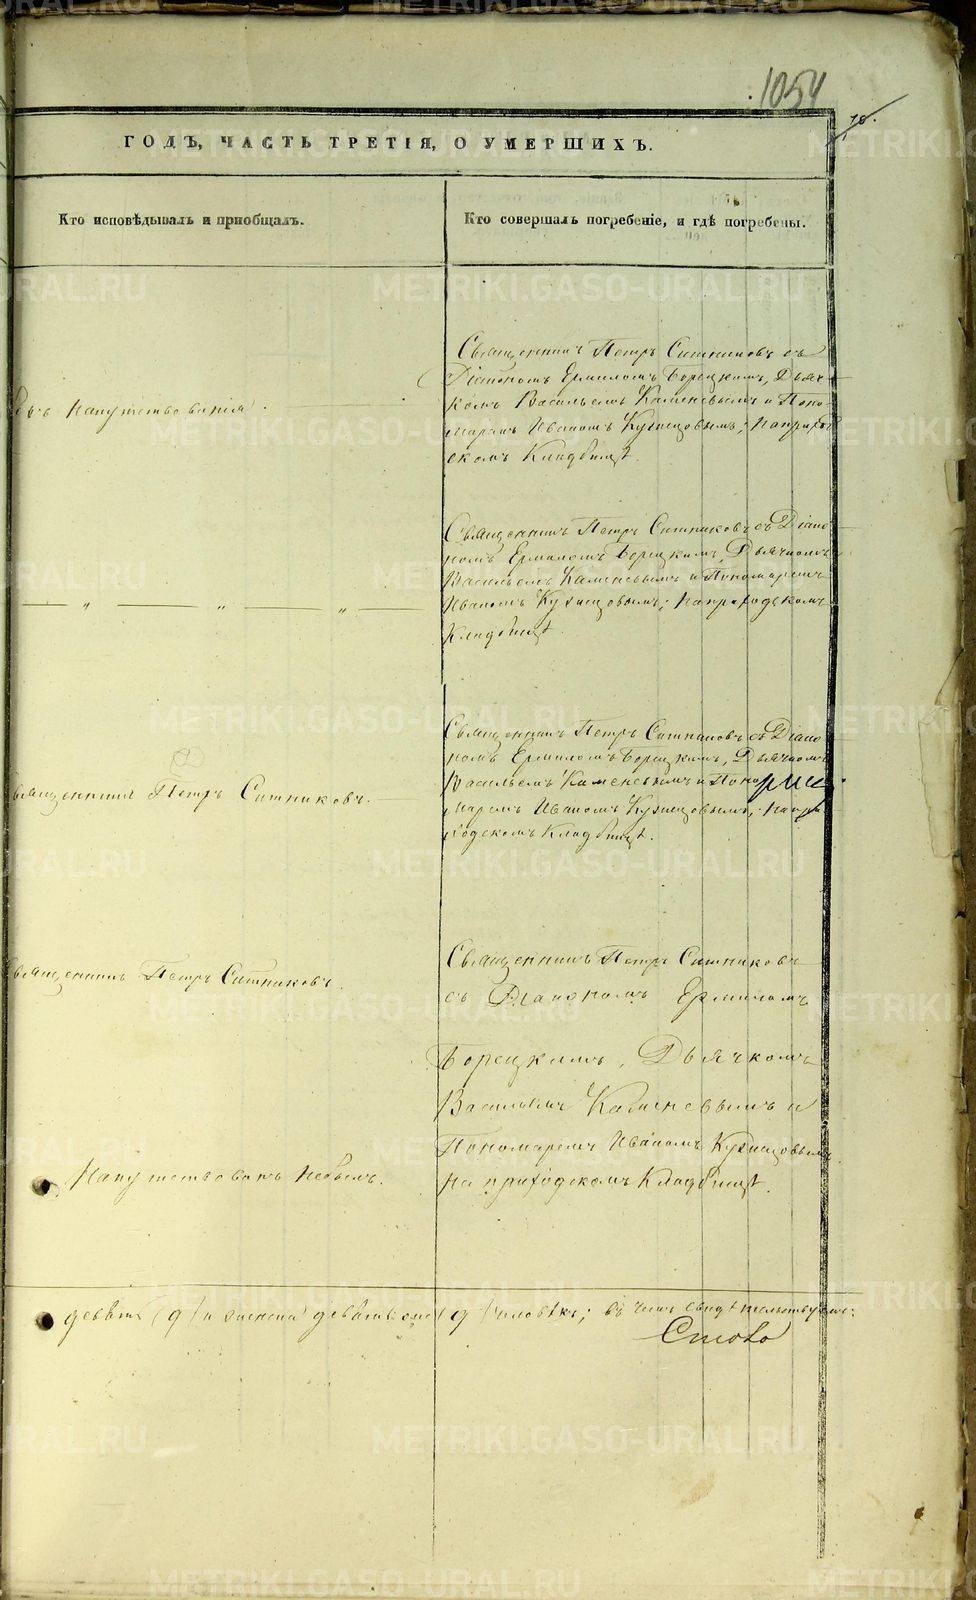 1054
78.
ГОДЪ, ЧАСТЬ ТРЕТІЯ, О УМЕРШИХЪ.
Кто исповѣдывалъ и пріобщалъ.
Кто совершалъ погребеніе, и гдѣ погребены.
Священникъ Петръ Ситниковъ съ
Діакономъ Ермиломъ Борецкимъ, Дьяч-
комъ Васильемъ Каменевымъ и Поно-
маремъ Иваномъ Кузнецовымъ; на приход
скомъ Кладбищѣ.
напутствованія.
Священникъ Петръ Ситниковъ съ Діако-
номъ Ермиломъ Борецкимъ, Дьячкомъ
Васильемъ Каменевымъ и Пономаремъ
Иваномъ Кузнецовымъ; на приходскомъ
Кладбищѣ.
— „ — „ — „ —
Священникъ Петръ Ситниковъ съ Діако-
номъ Ермиломъ Борецкимъ, Дьячкомъ
Васильемъ Каменевымъ и Поно-
маремъ Иваномъ Кузнецовымъ; на при-
ходскомъ Кладбищѣ.
Священникъ Петръ Ситниковъ.
Священникъ Петръ Ситниковъ
съ Діакономъ Ермиломъ
Борецкимъ, Дьячкомъ
Васильемъ Каменевымъ и
Пономаремъ Иваномъ Кузнецовымъ
на приходскомъ Кладбищѣ.
Священникъ Петръ Ситниковъ.
Напутствованъ небылъ.
девять (9) и женска девять (9) человѣкъ; въ чемъ свидѣтельствуемъ:
METRIKI.GASO-URAL.RU